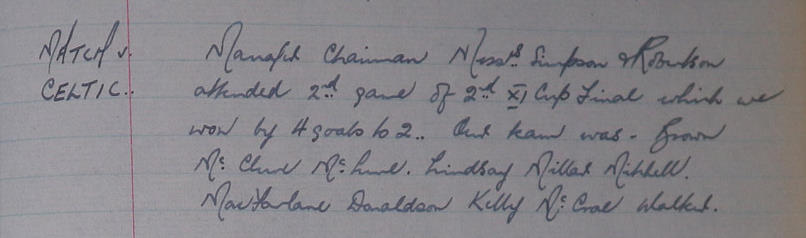 MATCH v. Manager Chairman Messrs Simpson & Robertson
CELTIC.. attended 2nd game of 2nd XI Cup Final which we
won by 4 goals to 2.. Our team was - Brown
Mc Clure Mc . Lindsay Millar Mitchell.
MacFarlane Donaldson Kelly Mc Crae Walker.